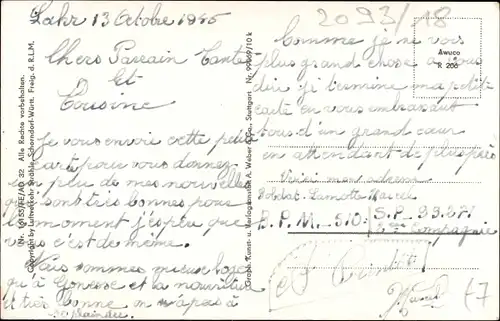 Lahr 13 Octobre 1945
Chers Parrain Tante
Et
Cousine
Je vous envoie cette petite
carte pour vous donnez
un peu de mes nouvelles
qui sont très bonnes pour
le moment j'espère que
vous c'est de même.
Nous sommes mieux loger
qu'à Gonesse et la nourriture
et très bonne on n'a pas à
se plaindre
Nr. 14153/FE/AG 32 Alle Rechte vorbehalten.
Copyright by Luftverkehr Strähle, Schorndorf-Württ. Freig. d. R.L.M.
Graph. Kunst- u. Verlagsanstalt A. Weber & Co., Stuttgart Nr. 99969/10 k
2093/18
Awuco
R 206
Comme je ne vois
plus grand chose à vous
dire je termine ma petite
carte en vous embrassant
tous d'un grand cœur
en attendant de plus près
Voici mon adresse
Soldat Lamotte Marcel
B.P.M. 510. S.P.
Compagnie
Marcel